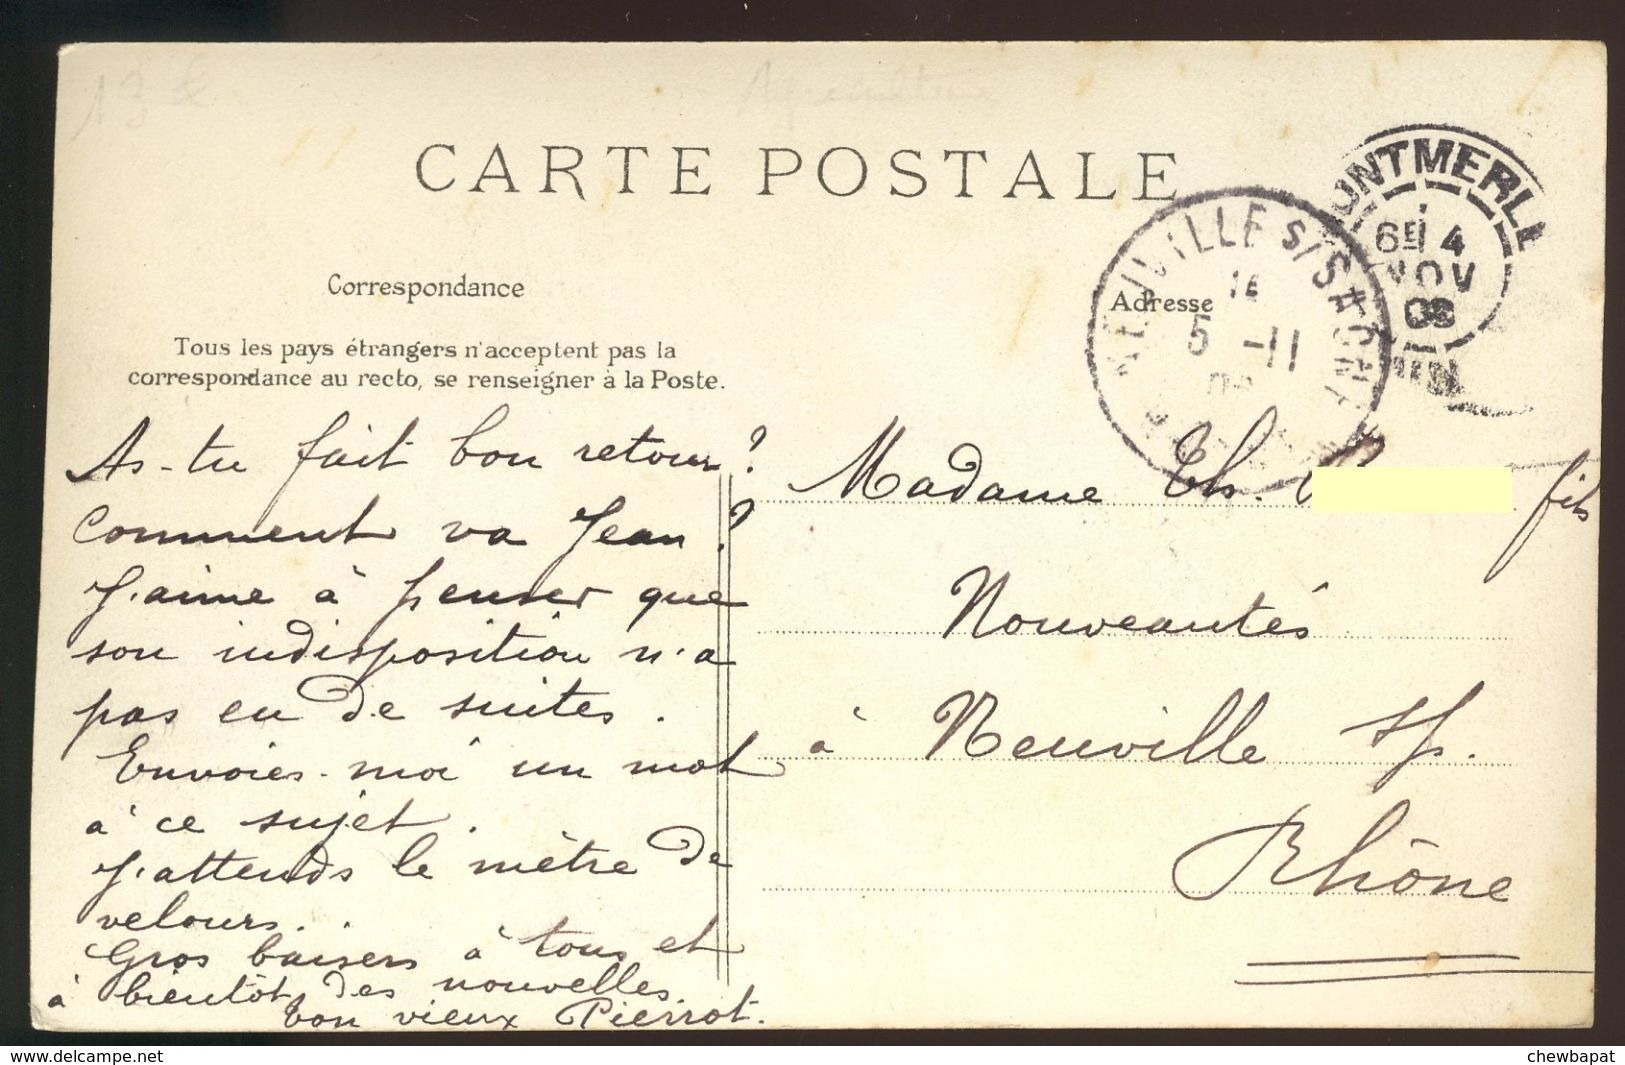 13
CARTE POSTALE
Correspondance
Tous les pays étrangers n'acceptent pas la
correspondance au recto, se renseigner à la Poste.
Adresse
NEUVILLE S/SAONE
5 -11
ONTMERLE
6E 4
NOV
08
As-tu fait bon retour ?
Comment va Jean ?
J'aime à penser que
son indisposition n'a
pas eu de suites.
Envoies-moi un mot
à ce sujet.
J'attends le mètre de
velours.
Gros baisers à tous et
à bientôt des nouvelles.
Ton vieux Pierrot.
Madame Th. fils
Nouveautés
à Neuville s/s.
Rhône
delcampe.net
chewbapat